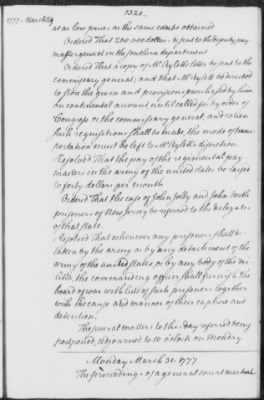 1320.
1777 March 29
at as low prices as the same can be obtained
Ordered That 200,000 dollars be sent to the deputy pay
master general in the southern department
Ordered That a copy of Mr Aylett's letter be sent to the
commissary general; and that Mr Aylett be directed
to store the grain and provisions purchased by him
on continental account until called for by order of
Congress or the commissary general, and when
such requisitions shall be made the mode of trans-
portation must be left to Mr Aylett's discretion.
Resolved That the pay of the regimental pay
masters in the army of the united states be raised
to forty dollars per month
Ordered That the case of John Jolly and John North
prisoners of New Jersey be referred to the delegates
of that state.
Resolved That whenever any prisoners shall be
taken by the army or by any detachment of the
army of the united states, or by any body of the mi
litia, the commanding officer shall furnish the
board of war with lists of such prisoners together
with the cause and manner of their capture and
detention.
The several matters to this day referred being
postponed, adjourned to 10 o'clock on Monday
Monday March 31. 1777
The proceedings of a general court martial